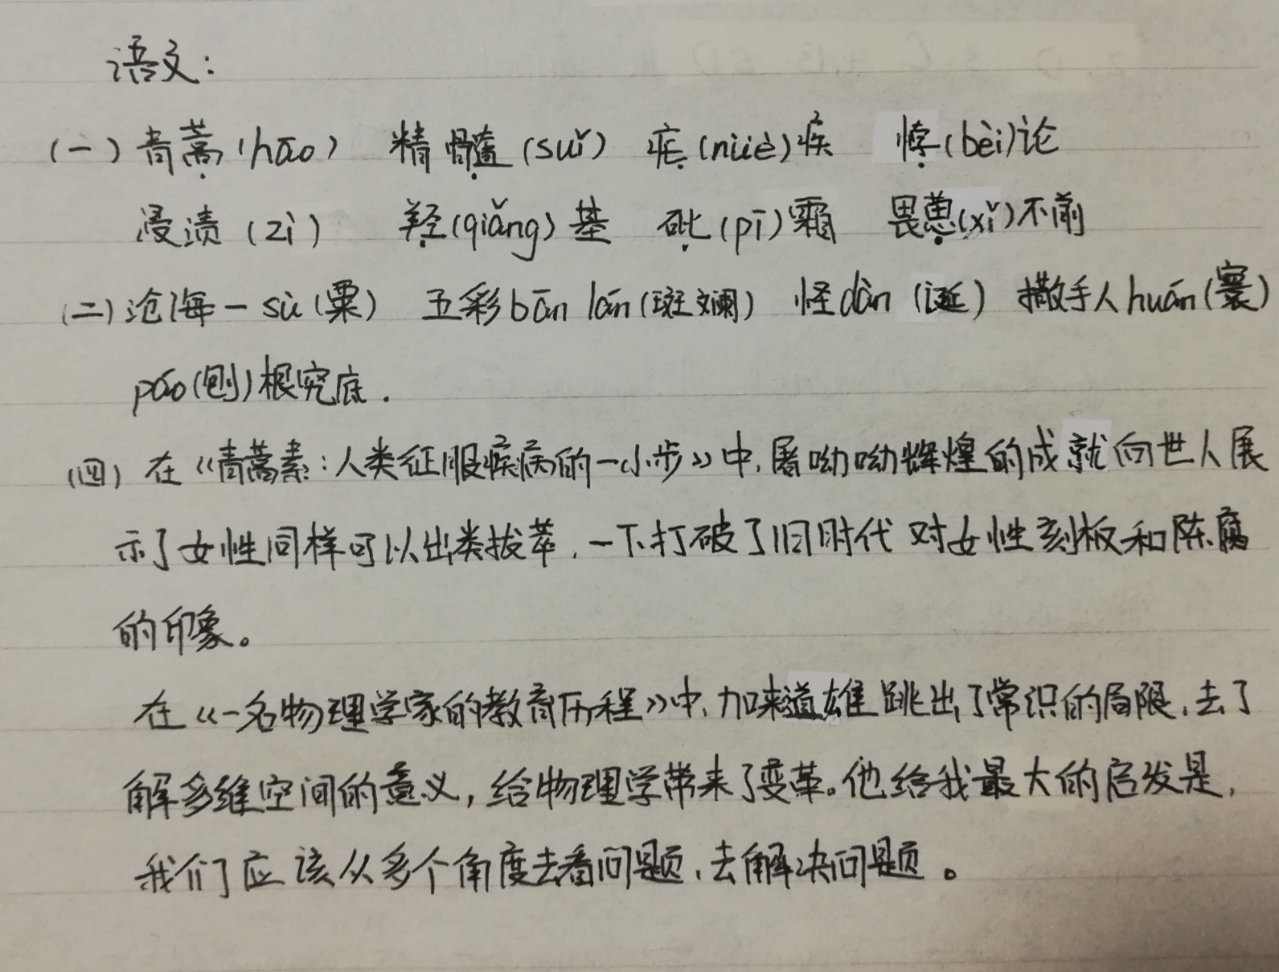 语文:
(一) 青蒿(hāo) 精髓(suǐ) 疟(nüè)疾 悖(bèi)论
浸渍(zì) 羟(qiǎng)基 砒(pī)霜 畏葸(xǐ)不前
(二) 沧海一sù(粟) 五彩bān lán(斑斓) 怪dàn(诞) 撒手人huán(寰)
páo(刨)根究底.
(四) 在《青蒿素:人类征服疾病的一小步》中,屠呦呦辉煌的成就向世人展
示了女性同样可以出类拔萃,一下打破了旧时代对女性刻板和陈腐
的印象。
在《一名物理学家的教育历程》中,加来道雄跳出了常识的局限,去了
解多维空间的意义,给物理学带来了变革。他给我最大的启发是,
我们应该从多个角度去看问题,去解决问题。